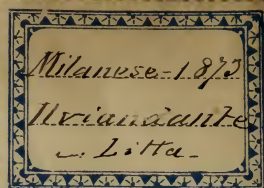 Milanese - 1873
Il viandante
Litta -